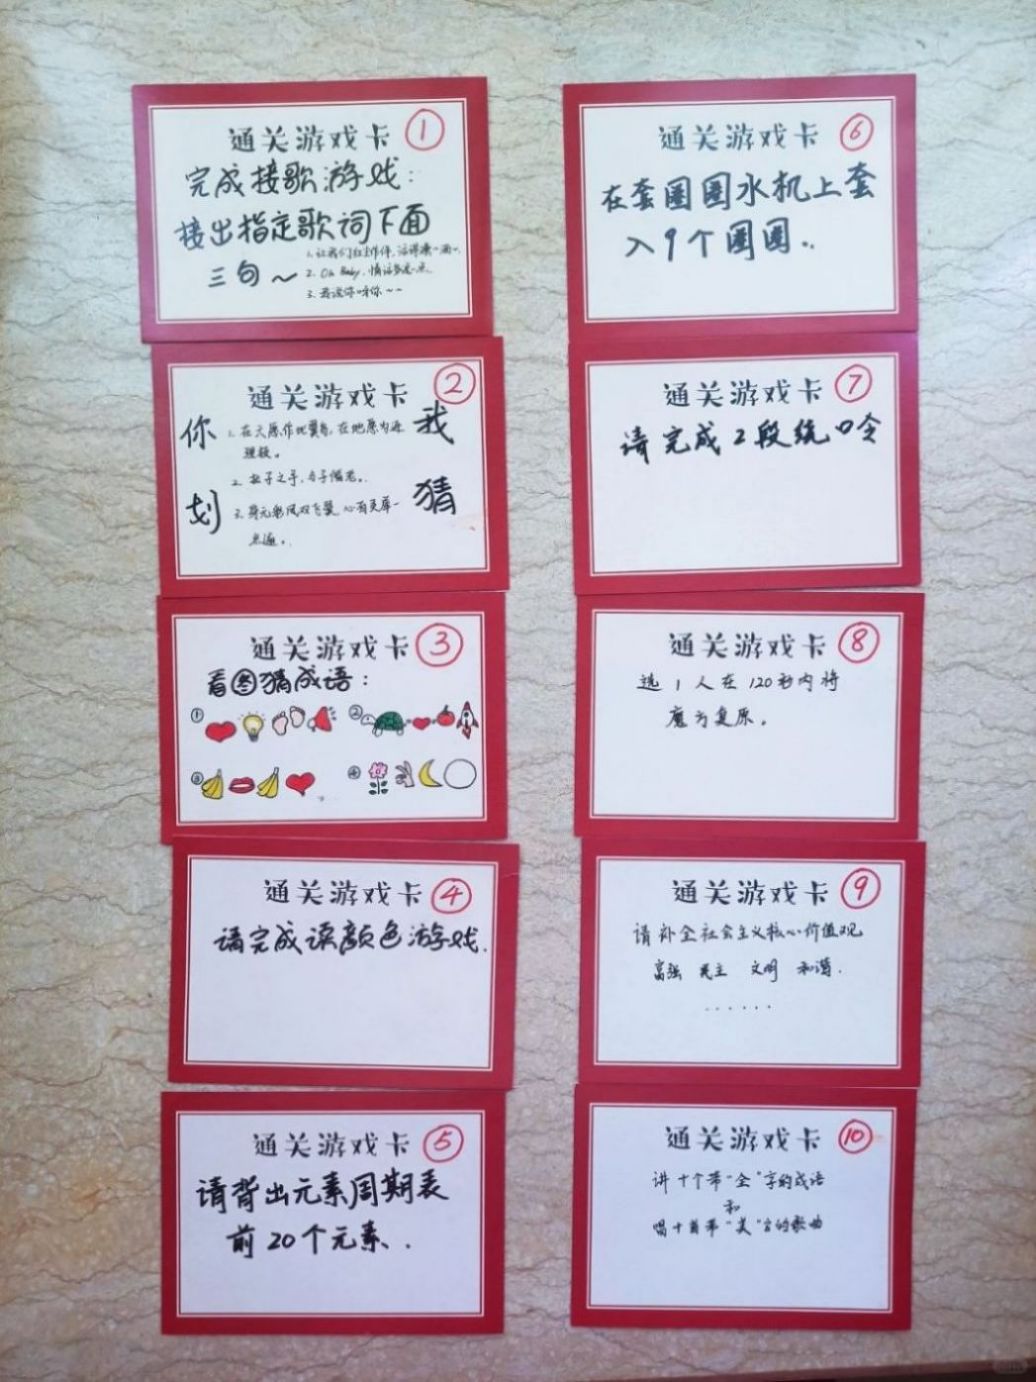 通关游戏卡 ①
完成接歌游戏:
接出指定歌词下面
三句~
1. 让我们红尘作伴,活得潇洒
2. Oh Baby, 情话多说一点
3.
通关游戏卡 ②
你划
我猜
1. 在天愿作比翼鸟,在地愿为连
理枝。
2. 执子之手,与子偕老。
3. 身无彩凤双飞翼,心有灵犀一
点通。
通关游戏卡 ③
看图猜成语:
①
②
③
④
通关游戏卡 ④
请完成误颜色游戏.
通关游戏卡 ⑤
请背出元素周期表
前20个元素.
通关游戏卡 ⑥
在套圈圈水机上套
入9个圈圈..
通关游戏卡 ⑦
请完成2段绕口令
通关游戏卡 ⑧
选1人在120秒内将
魔方复原。
通关游戏卡 ⑨
请补全社会主义核心价值观
富强 民主 文明 和谐.
......
通关游戏卡 ⑩
讲十个带"全"字的成语
和
唱十首带"美"字的歌曲